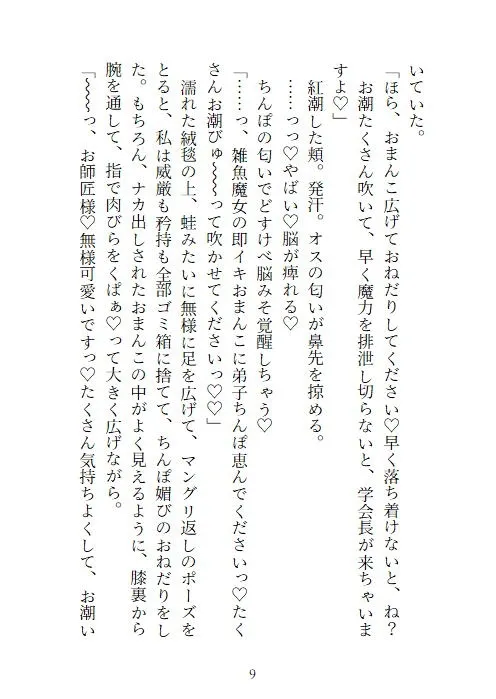 いていた。
「ほら、おまんこ広げておねだりしてください♡早く落ち着けないと、ね？
　お潮たくさん吹いて、早く魔力を排泄し切らないと、学会長が来ちゃいま
すよ♡」
　紅潮した頬。発汗。オスの匂いが鼻先を掠める。
　……っっ♡やばい♡脳が痺れる♡
　ちんぽの匂いでどすけべ脳みそ覚醒しちゃう♡
「……っ、雑魚魔女の即イキおまんこに弟子ちんぽ恵んでくださいっ♡たく
さんお潮びゅ〜〜って吹かせてくださいっ♡♡」
　濡れた絨毯の上、蛙みたいに無様に足を広げて、マングリ返しのポーズを
とると、私は威厳も矜持も全部ゴミ箱に捨てて、ちんぽ媚びのおねだりをし
た。もちろん、ナカ出しされたおまんこの中がよく見えるように、膝裏から
腕を通して、指で肉びらをくぱぁ♡って大きく広げながら。
「〜〜〜っ、お師匠様♡無様可愛いですっ♡たくさん気持ちよくして、お潮い
9